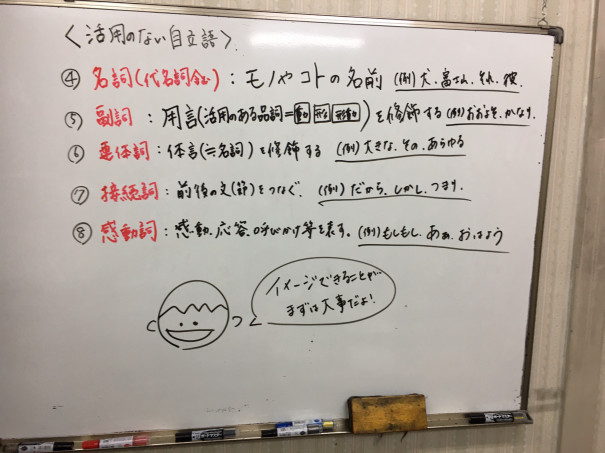 ＜活用のない自立語＞.
④ 名詞(代名詞含む)：モノやコトの名前 (例)犬、高さ、それ、彼.
⑤ 副詞：用言(活用のある品詞=動 形 形動)を修飾する (例)おおよそ、かなり.
⑥ 連体詞：体言(≒名詞)を修飾する (例)大きな、その、あらゆる
⑦ 接続詞：前後の文(節)をつなぐ. (例)だから、しかし、つまり.
⑧ 感動詞：感動、応答、呼びかけ等を表す。(例)もしもし、あぁ、おはよう
イメージできることが
まずは大事だよ!